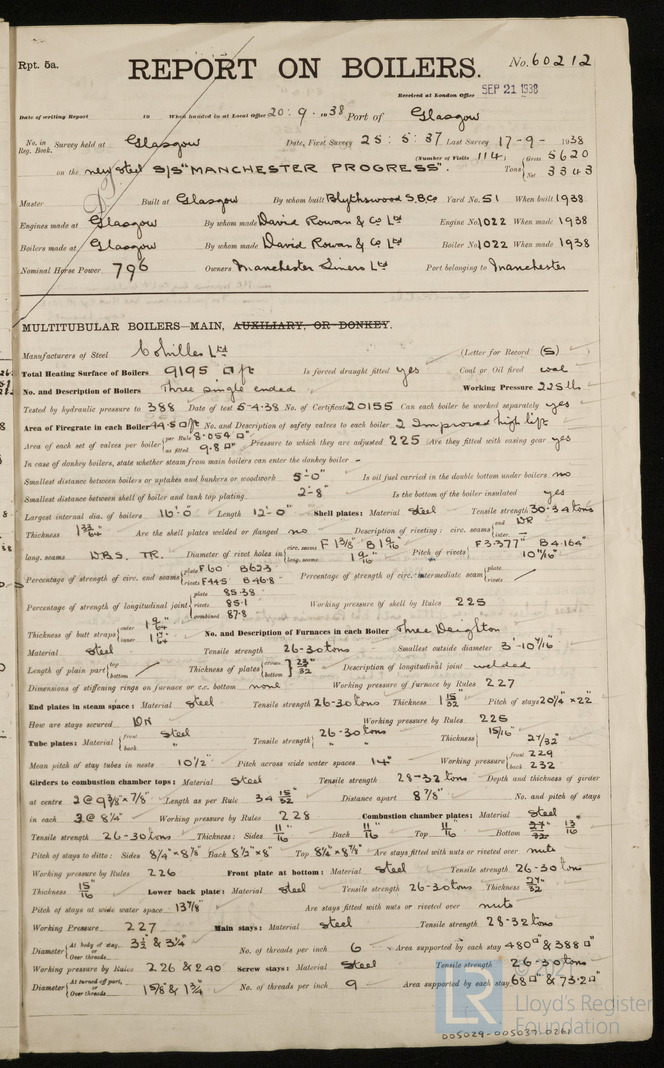 Rpt. 5a.
REPORT ON BOILERS.
No. 60212
Received at London Office SEP 21 1938
Date of writing Report 19 When handed in at Local Office 20·9·1938 Port of Glasgow
No. in Reg. Book. Survey held at Glasgow Date, First Survey 25:5:37 Last Survey 17-9-1938
(Number of Visits 114)
on the new steel S/S "MANCHESTER PROGRESS". Tons { Gross 5620 Net 3343
Master Built at Glasgow By whom built Blythswood S.B.Co Yard No. 51 When built 1938
Engines made at Glasgow By whom made David Rowan & Co Ltd Engine No. 1022 When made 1938
Boilers made at Glasgow By whom made David Rowan & Co Ltd Boiler No. 1022 When made 1938
Nominal Horse Power 796 Owners Manchester Liners Ltd Port belonging to Manchester
MULTITUBULAR BOILERS—MAIN, AUXILIARY, OR DONKEY.
Manufacturers of Steel Colvilles Ltd (Letter for Record (S) )
Total Heating Surface of Boilers 9195 □ ft Is forced draught fitted yes Coal or Oil fired coal
No. and Description of Boilers Three single ended Working Pressure 225 lb
Tested by hydraulic pressure to 388 Date of test 5-4-38 No. of Certificate 20155 Can each boiler be worked separately yes
Area of Firegrate in each Boiler 44.5 □ ft No. and Description of safety valves to each boiler 2 Improved high lift
Area of each set of valves per boiler { per Rule 8.054 □" as fitted 9.8 □" Pressure to which they are adjusted 225 Are they fitted with easing gear yes
In case of donkey boilers, state whether steam from main boilers can enter the donkey boiler -
Smallest distance between boilers or uptakes and bunkers or woodwork 5'-0" Is oil fuel carried in the double bottom under boilers no
Smallest distance between shell of boiler and tank top plating 2'-8" Is the bottom of the boiler insulated yes
Largest internal dia. of boilers 16'-0" Length 12'-0" Shell plates: Material Steel Tensile strength 30-34 tons
Thickness 1 33/64" Are the shell plates welded or flanged no Description of riveting: circ. seams { end DR inter.
long. seams DBS. TR. Diameter of rivet holes in { circ. seams F 1 3/8" B 1 9/16" long. seams 1 9/16" Pitch of rivets { F 3.377" B 4.164" 10 9/16"
Percentage of strength of circ. end seams { plate F 60 B 62.3 rivets F 44.5 B 46.8 Percentage of strength of circ. intermediate seam { plate rivets
Percentage of strength of longitudinal joint { plate 85.38 rivets 85.1 combined 87.8 Working pressure of shell by Rules 225
Thickness of butt straps { outer 1 9/64 inner 1 17/64 No. and Description of Furnaces in each Boiler Three Deighton
Material Steel Tensile strength 26-30 tons Smallest outside diameter 3'-10 7/16"
Length of plain part { top bottom Thickness of plates { crown bottom } 23/32" Description of longitudinal joint welded
Dimensions of stiffening rings on furnace or c.c. bottom none Working pressure of furnace by Rules 227
End plates in steam space: Material Steel Tensile strength 26-30 tons Thickness 1 15/32 Pitch of stays 20 1/4" × 22"
How are stays secured DN Working pressure by Rules 225
Tube plates: Material { front Steel back " Tensile strength { 26-30 tons " " Thickness { 15/16" 27/32"
Mean pitch of stay tubes in nests 10 1/2" Pitch across wide water spaces 14" Working pressure { front 229 back 232
Girders to combustion chamber tops: Material Steel Tensile strength 28-32 tons Depth and thickness of girder
at centre 2 @ 9 3/8" × 7/8" Length as per Rule 34 15/32 Distance apart 8 7/8" No. and pitch of stays
in each 3 @ 8 1/4" Working pressure by Rules 228 Combustion chamber plates: Material Steel
Tensile strength 26-30 tons Thickness: Sides 11/16" Back 11/16" Top 11/16" Bottom 13/16"
Pitch of stays to ditto: Sides 8 1/4" × 8 7/8" Back 8 1/2" × 8" Top 8 1/4" × 8 7/8" Are stays fitted with nuts or riveted over nuts
Working pressure by Rules 226 Front plate at bottom: Material Steel Tensile strength 26-30 tons
Thickness 15/16" Lower back plate: Material Steel Tensile strength 26-30 tons Thickness 27/32"
Pitch of stays at wide water space 13 7/8" Are stays fitted with nuts or riveted over nuts
Working Pressure 227 Main stays: Material Steel Tensile strength 28-32 tons
Diameter { At body of stay, or Over threads 3 1/2" & 3 1/4" No. of threads per inch 6 Area supported by each stay 480 □" & 388 □"
Working pressure by Rules 226 & 240 Screw stays: Material Steel Tensile strength 26-30 tons
Diameter { At turned off part, or Over threads 1 5/8" & 1 3/4" No. of threads per inch 9 Area supported by each stay 68 □" & 73.2 □"
LR © 2021 Lloyd's Register Foundation
005029-005037-0261